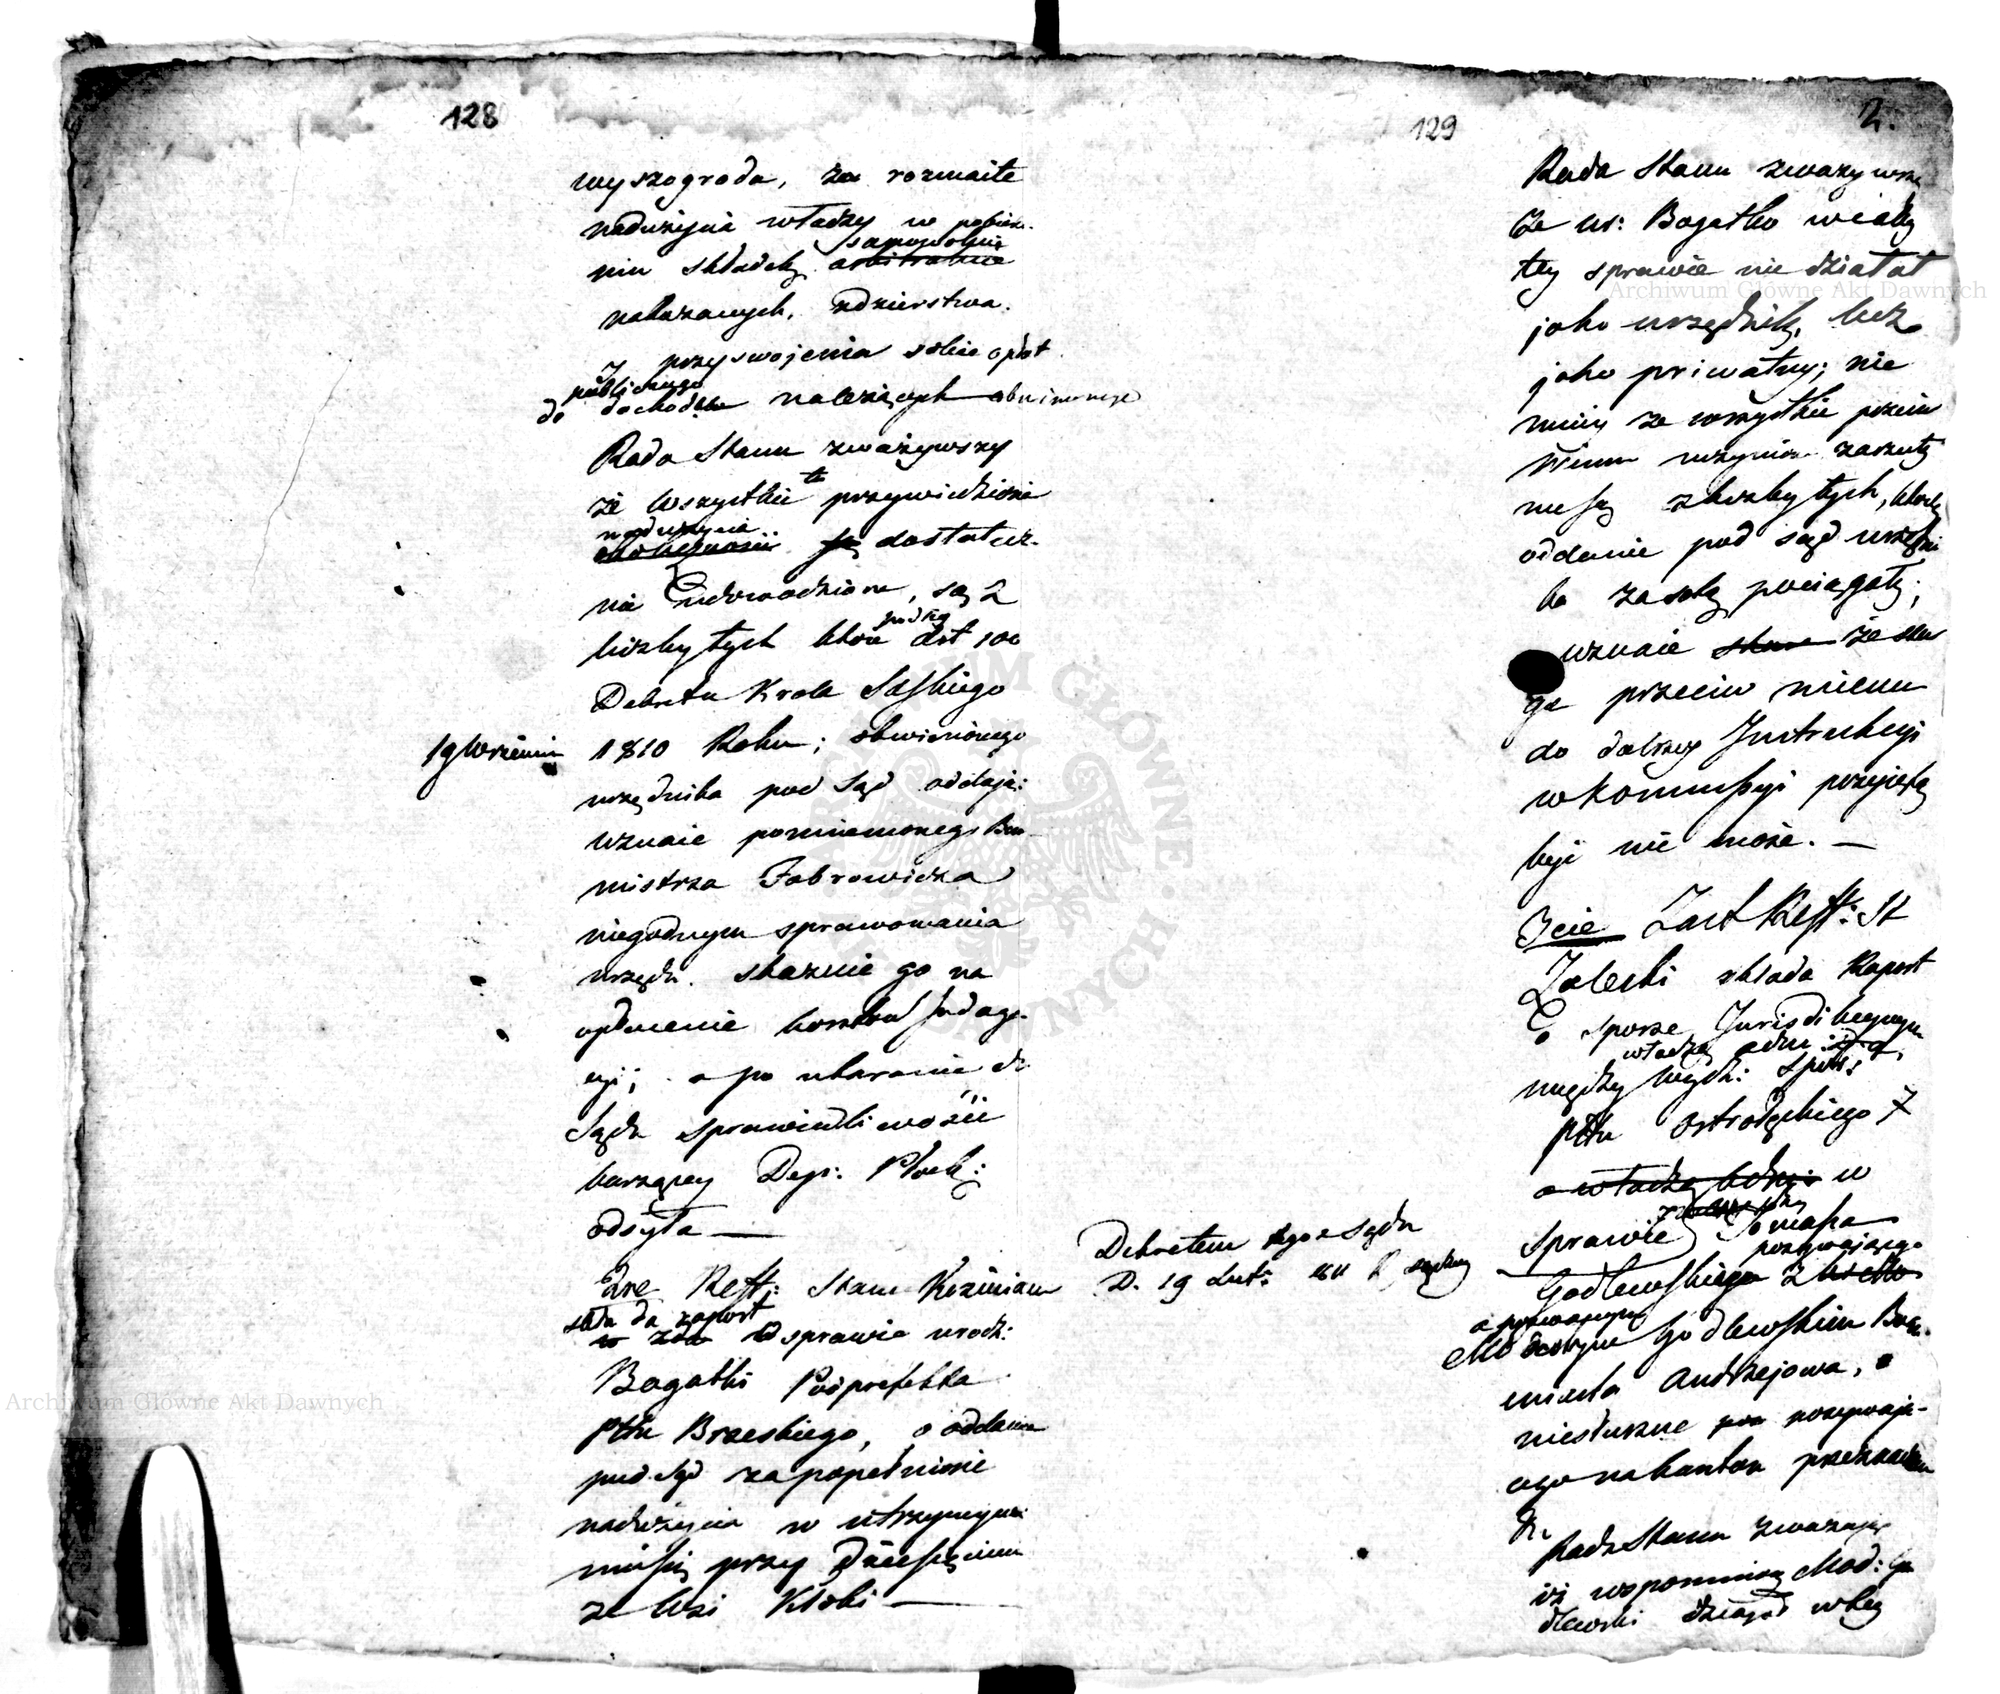 128
wyszogroda, za rozmaite
nadużycia władzy w pobiera-
niu składek samowolnie
arbitralnie
nakazanych, zdzierstwa.
z przyswojenia sobie opłat
do publicznego dochodu należących obwinionego
Rada Stanu zważywszy
że wszystkie te przywiedzione
nadużycia są dostatecz-
nie udowodnione, są z
liczby tych które podług art 100
Dekretu Króla Saskiego
19 Września 1810 Roku; obwinionego
urzędnika pod Sąd oddają:
uznaie pomienionego Bur-
mistrza Fabrowicza
niegodnym sprawowania
urzędu. skazuie go na
opłacenie kosztów Indaga-
cyi; a po ukaranie do
Sądu sprawiedliwości
karzącey Dep: Płock:
odsyła —
2re Reff: Stanu Koźmian
składa raport
w sprawie urodz:
Bogatki Podprefekta
Pttu Brzeskiego, o oddanie
pod Sąd za popełnione
nadużycia w utrzymywa-
niu się przy Dziesięcinie
ze Wsi Kłobi —
Dekretem tegoż Sądu
D. 19 Lut: 1811 R
129
2.
Rada Stanu zważywszy
że ur: Bogatko w cały
tey sprawie nie działał
jako urzędnik, lecz
jako priwatny; nie
mniey że wszystkie przeciw
niemu uczynione zarzuty
nie są z liczby tych, które
oddanie pod sąd urzędni
ka za sobą pociągały;
uznaie że skar
ga przeciw niemu
do dalszey Instrukcyi
w Kommissyi przyjętą
być nie może. —
3cie Zast Reff: St
Zaleski składa Raport
o sporze Jurisdikcyinym
między władzą adm:
Wydz: Spor:
Pttu Ostrołęckiego
a władzą w
sprawie Tomasza
pozywającego
Godlewskiego
a pozwanym
Modestym Godlewskim Bur.
miasta Andrzejowa, o
niesłuszne pozywają-
cego na kanton przeznacze
nie
Rada Stanu zważając
iż wspomniony Mod: Go
dlewski działał w tey